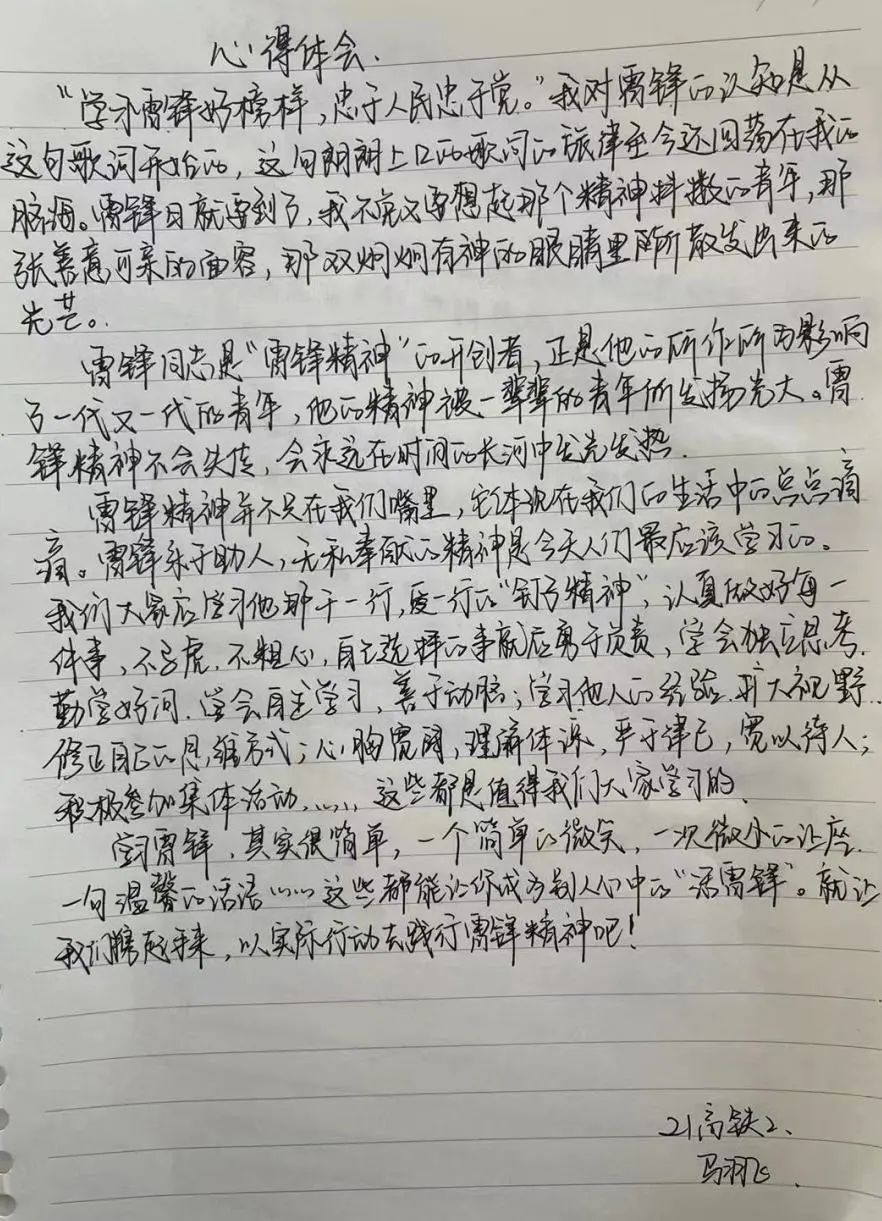 心得体会.
“学习雷锋好榜样,忠于人民忠于党。”我对雷锋的认知是从
这句歌词开始的,这句朗朗上口的歌词的旋律至今还回荡在我的
脑海。雷锋日就要到了,我不免又要想起那个精神抖擞的青年,那
张善意可亲的面容,那双炯炯有神的眼睛里所散发出来的
光芒。
雷锋同志是“雷锋精神”的开创者,正是他的所作所为影响
了一代又一代的青年,他的精神被一辈辈的青年所发扬光大。雷
锋精神不会失传,会永远在时间的长河中发光发热.
雷锋精神并不只在我们嘴里,它体现在我们的生活中的点点滴
滴。雷锋乐于助人,无私奉献的精神是今天人们最应该学习的。
我们大家应学习他那干一行,爱一行的“钉子精神”,认真做好每一
件事,不马虎,不粗心,自己选择的事就应勇于负责,学会独立思考.
勤学好问.学会自主学习,善于动脑;学习他人的经验.扩大视野..
修正自己的思维方式;心胸宽阔,理解体谅,严于律己,宽以待人;
积极参加集体活动......这些都是值得我们大家学习的.
学习雷锋,其实很简单,一个简单的微笑,一次微小的让座.
一句温馨的话语......这些都能让你成为别人心中的“活雷锋”。就让
我们携起手来,以实际行动去践行雷锋精神吧!
21高铁2、
马羽飞.